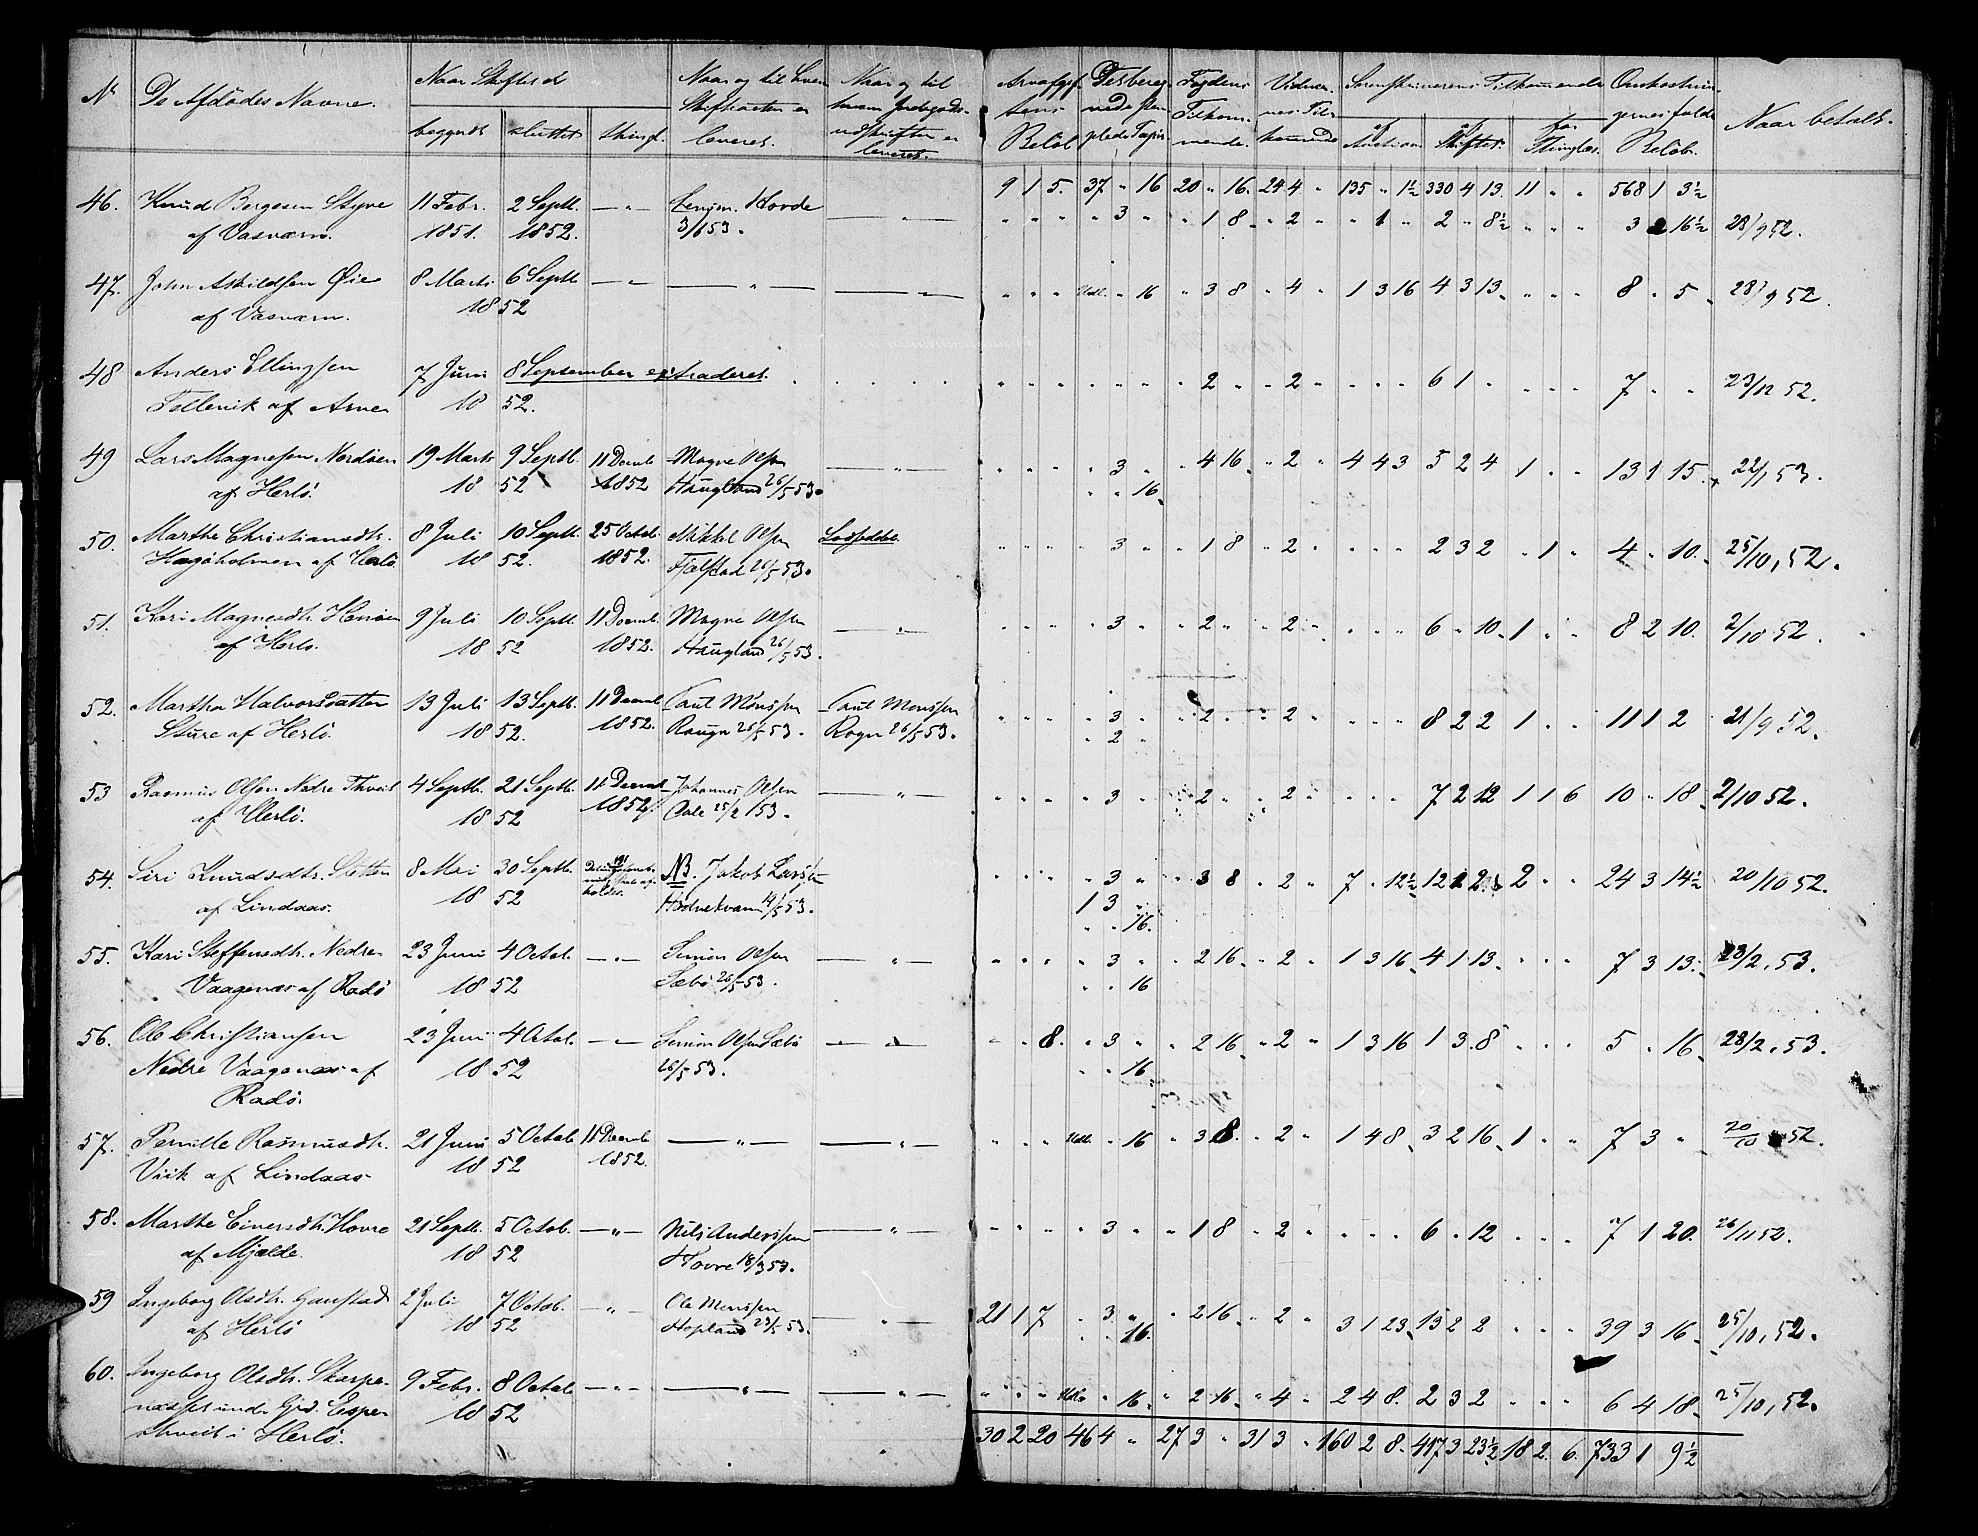 No De Afdödes Navne. Naar Skiftet er begyndt sluttet thingl. Naar og til hvem Skifteacten er leveret. Naar og til hvem Jordegods udskriften er leveret. Beløb Fogdens Tilkommende. Sorenskriverens Tilkommende Auction Skiftet Thinglæs. Beløb. Naar betalt.
9 1 5. 37 " 16 20 " 16. 24 4 " 135 " 1½ 330 4 13. 11 " " 568 1 3½
46. Knud Borgesen Styve 11 Febr. 2 Septb. — " — Lensm. Hovde — " — " " " " 3 " " 1 8 " 2 " " 1 " 2 " 8½ " " " 3 2 16½ 28/9 52.
af Vasværn. 1851. 1852. 3/6 53.
47. John Askildsen Øie 8 Marts 6 Septb. — " — — " — — " — " " " Udl. " 16 " 3 8 " 4 " 1 3 16 4 3 13 " " " 8 " 5 28/9 52.
af Vasværn. 18 52
48 Anders Ellingsen 7 Juni 8 September extraderet. " " " " " " " 2 " " 2 " " " " 6 1 " " " " 7 " " 23/12 52.
Tellevik af Arne 18 52.
49 Lars Magnesen Nordøen 19 Marts 9 Septb. 11 Decmb Magne Olsen — " — " " " " 3 " " 4 16 " 2 " 4 4 3 5 2 4 1 " " 13 1 15 22/1 53.
af Herlö. 18 52 1852 Haugland 26/5 53. " " 16
50. Marthe Christiansdtr. 8 Juli 10 Septb. 25 Octob. Mikkel Olsen " " " " 3 " " 1 8 " 2 " " " " 2 3 2 " 1 " 4 " 10. 25/10, 52.
af Herlö 18 52. 1852. Fjelstad 26/5 53.
51. Kari Magnesdtr. 9 Juli 10 Septb 11 Decmb Magne Olsen — " — " " " " 3 " " 2 " " 2 " " " " 6 " 10 1 " " 8 2 10. 2/10 52.
af Herlö. 18 52 1852. Haugland 26/5 53.
52. Martha Halvorsdatter 13 Juli 13 Septb. 11 Decmb Paul Monssen Paul Monssen " " " " 3 " " 2 " " 2 " " " " 8 2 2 1 " " 11 1 2 21/9 52.
Sture af Herlö. 18 52. 1852. 26/5 53. Rogn 26/5 53. " 2 "
53 Rasmus Olsen Nedre Thveit 4 Septb. 21 Septb. 11 Decmb Johannes Olsen — " — " " " " 3 " " 2 " " 2 " " " " 7 2 12 1 1 6 10 " 18 2/10 52.
af Herlö. 18 52 1852. 25/2 153.
54. Siri Knudsdtr. 8 Mai 30 Septb. NB. Jakob Larsen " " " " 3 " " 3 8 " 2 " 7 " 12½ 2 " " 24 3 14½ 20/10 52.
af Lindaas. 18 52 53. 1 3 "
" " 16.
55. Kari Steffensdtr. Nedre 23 Juni 4 Octob. — " — Simon Olsen — " — " " " " 3 " " 2 16 " 2 " 1 3 16 4 1 13 " " " 7 3 13. 23/2, 53.
Vaagenæs af Radö 18 52 Sæbö 26/5 53. " " 16
56. Ole Christiansen 23 Juni 4 Octob. — " — Simon Olsen Sæbö — " — " " 8. " 3 " " 2 16 " 2 " 1 3 16 1 3 8 " " " 5 " 16 28/2, 53.
Nedre Vaagenæs af 18 52 26/5 53. " " 16.
Radö.
57. Pernille Rasmusdtr. 21 Juni 5 Octob. 11 Decmb — " — — " — " " " Udl. " 16 " 3 8. " 2 " 1 4 8 3 2 16 1 " " 7 3 " 20/10 52.
Viik af Lindaas 18 52 1852.
58. Marthe Einersdtr. Hovre 21 Septb. 5 Octob. — " — Nils Anderssen — " — " " " " 3 " " 1 8 " 2 " " " " 6 " 12 " " " 7 1 20. 26/11 52.
af Mjelde. 18 52 Hovre 18/3 53.
59 Ingeborg Olsdtr. Gaustad 2 Juli 7 Octob. — " — Ole Monssen — " — 21 1 7 " 3 " " 2 16 " 2 " 3 1 23 13 2 2 " " " 39 3 16 25/10, 52.
af Herlö 18 52 Hopland 23/5 53. " " 16.
60. Ingeborg Olsdtr. Skarpe- 9 Febr. 8 Octob. — " — — " — — " — " " " Udl. " 16 " 2 16 " 4 " 2 4 8. 2 3 2 " " " 6 4 18 25/10, 52.
næsset under Grd. Espe- 18 52
thveit i Herlö. 30 2 20 46 4 " 27 3 " 31 3 " 160 2 8. 417 3 23½ 18 2 6. 733 1 9½